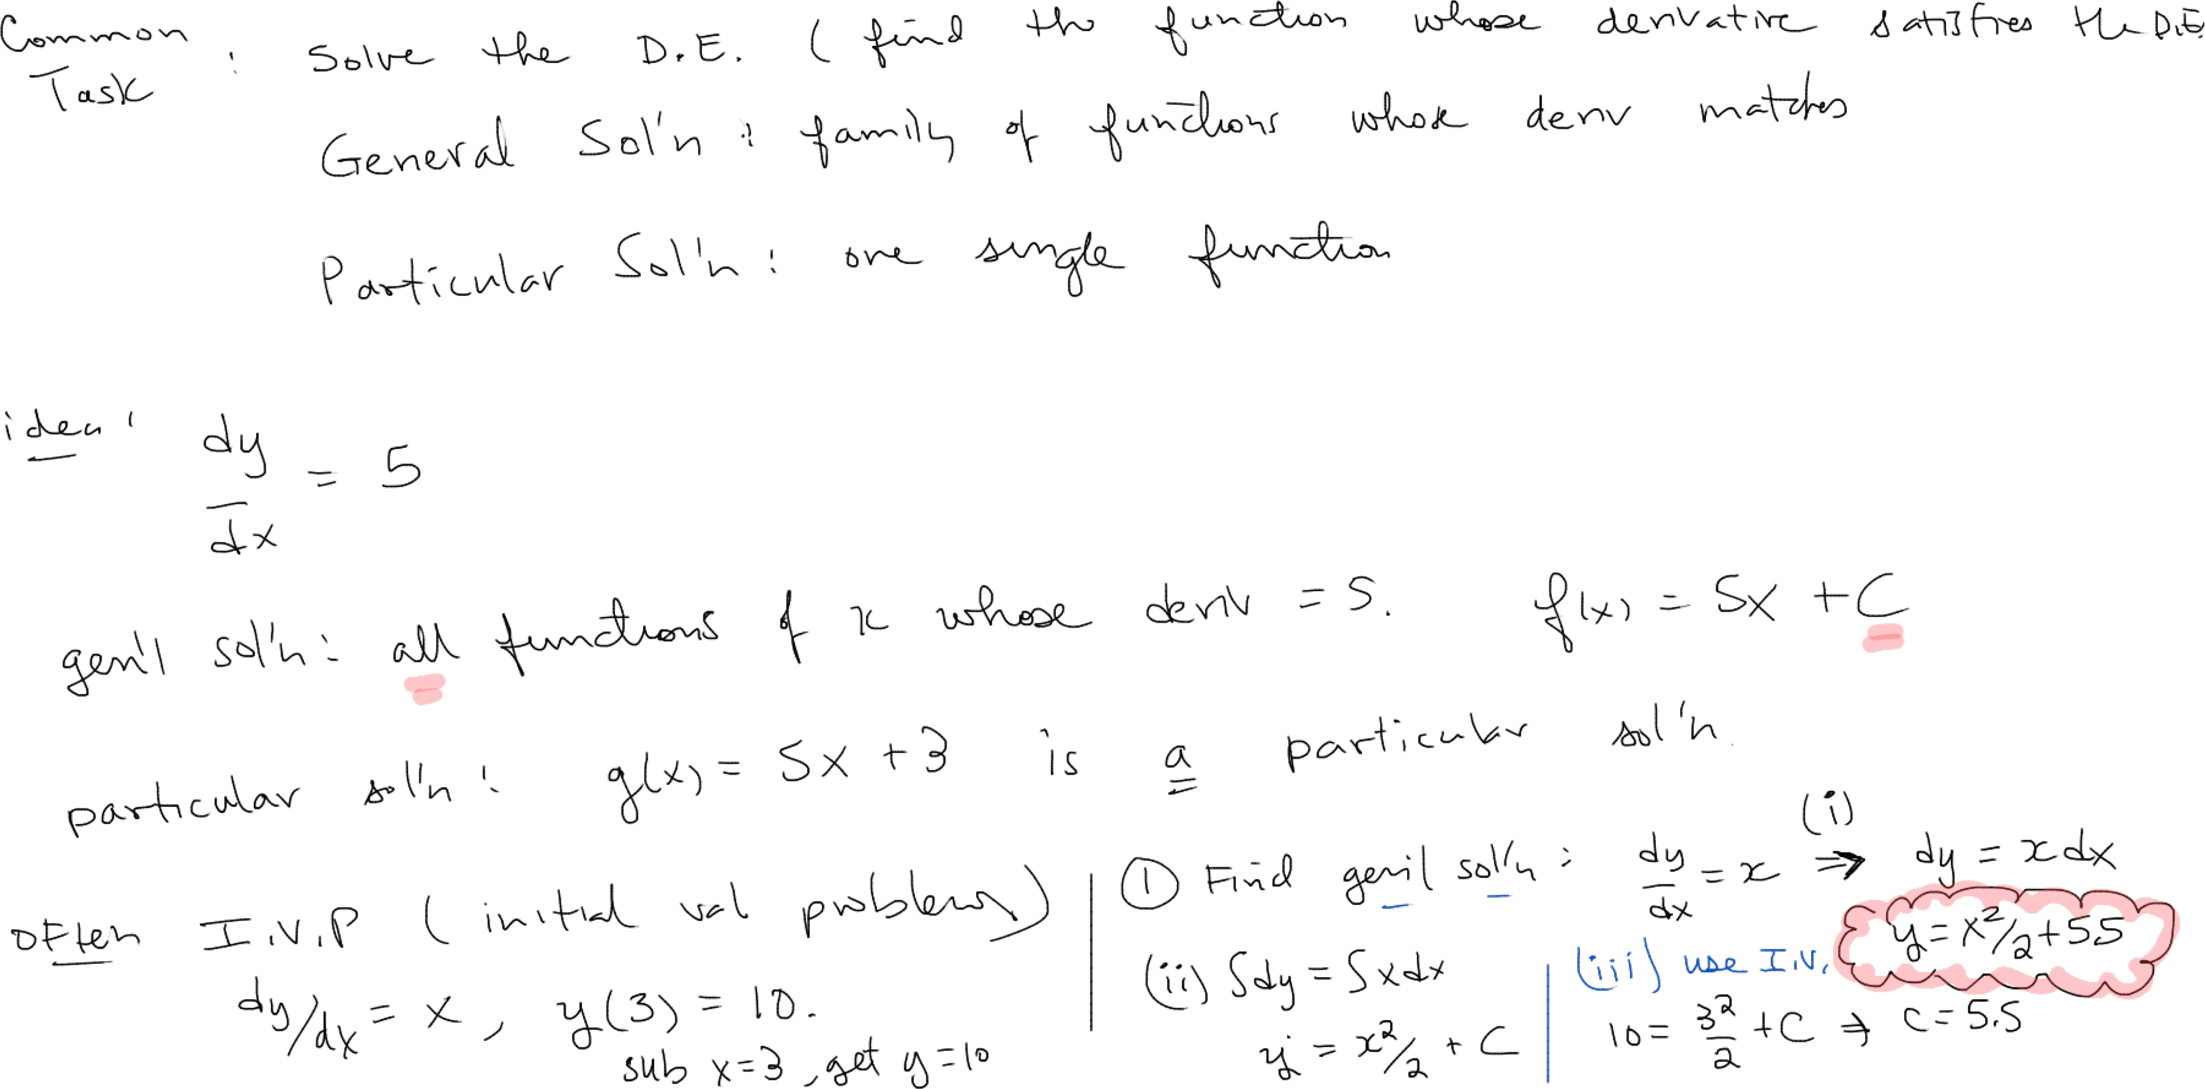 Common Task : Solve the D.E. ( find the function whose derivative satisfies the D.E.
General Sol'n : family of functions whose deriv matches
Particular Sol'n : one single function
idea : dy/dx = 5
gen'l sol'n : all functions of x whose deriv = 5. f(x) = 5x + C
particular sol'n : g(x) = 5x + 3 is a particular sol'n.
OFten I.V.P ( initial val problems)
dy/dx = x , y(3) = 10.
sub x=3 , get y=10
① Find gen'l sol'n : dy/dx = x (i) ⇒ dy = x dx
(ii) ∫dy = ∫xdx
y = x²/2 + C
(iii) use I.V.
10 = 3²/2 + C ⇒ C = 5.5
y = x²/2 + 5.5